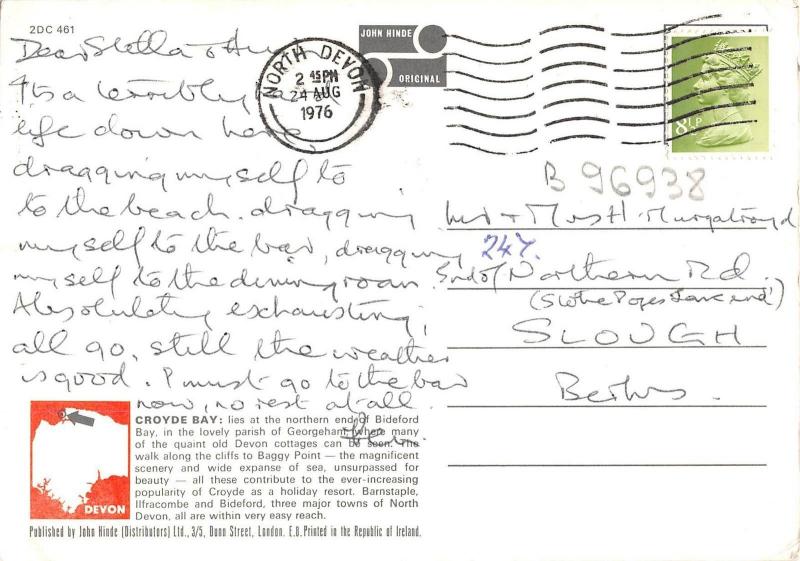 2DC 461
JOHN HINDE
ORIGINAL
NORTH DEVON
2 45 PM
24 AUG
1976
8½P
Dear Stella &
Its a terribly
life down here,
dragging myself to
to the beach. dragging
myself to the bar, dragging
myself to the dining room.
Absolutely exhausting,
all go, still the weather
is good. I must go to the bar
now, no rest at all.
B 96938
Mr & Mrs H. Murgatroyd
247.
End of Northern Rd.
(Stoke Poges Lane end)
SLOUGH
Berks.
CROYDE BAY: lies at the northern end of Bideford
Bay, in the lovely parish of Georgeham, where many
of the quaint old Devon cottages can be seen. The
walk along the cliffs to Baggy Point — the magnificent
scenery and wide expanse of sea, unsurpassed for
beauty — all these contribute to the ever-increasing
popularity of Croyde as a holiday resort. Barnstaple,
Ilfracombe and Bideford, three major towns of North
Devon, all are within very easy reach.
DEVON
Published by John Hinde (Distributors) Ltd., 3/5, Dunn Street, London. E.8. Printed in the Republic of Ireland.